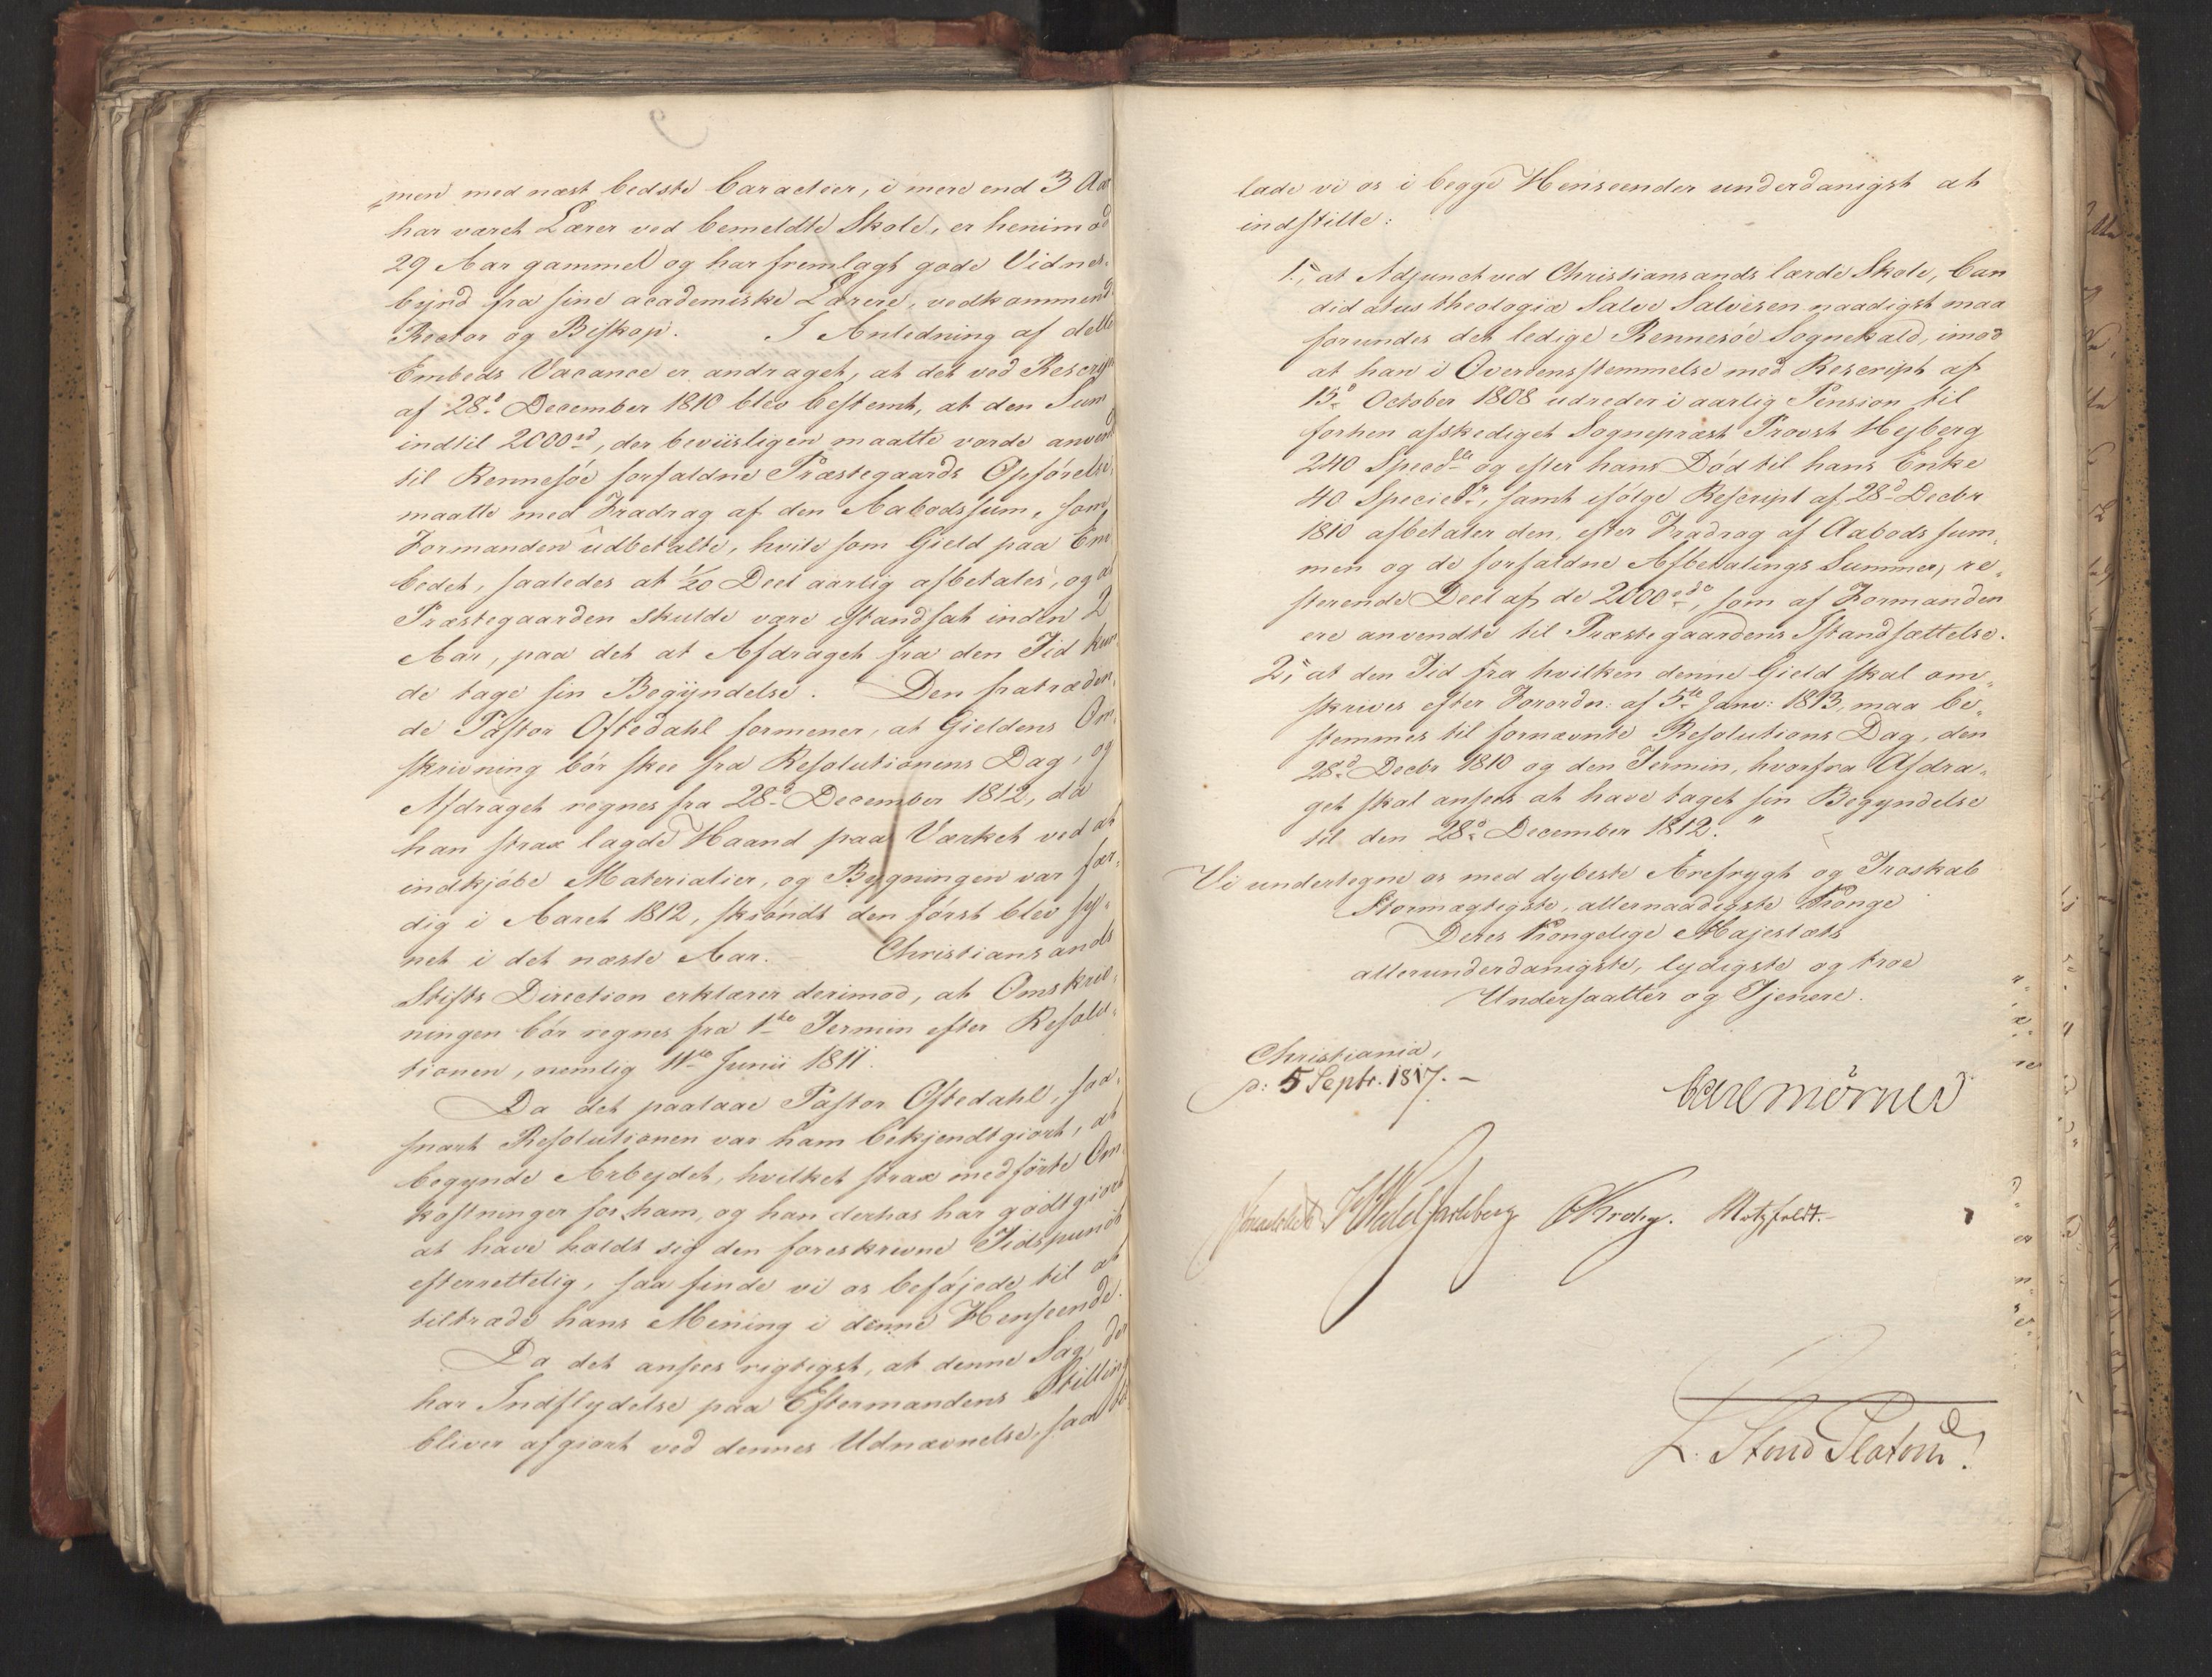 „men med næst bedste Caracteer, i mere end 3 Aar
har været Lærer ved bemeldte Skole, er henimod
29 Aar gammel og har fremlagt gode Vidnes-
byrd fra sine academiske Lærere, vedkommend
Rector og Biskop. I Anledning af dette
Embeds Vacance er andraget, at det ved Rescript
af 28d December 1810 blev bestemt, at den Sum
indtil 2000 rd, der beviisligen maatte vorde anvend
til Rennesöe forfaldne Præstegaards Opförelse,
maatte med Fradrag af den Aabodssum, som
Formanden udbetalte, hvile som Gield paa Em
bedet, saaledes at 1/20 Deel aarlig afbetales, og at
Præstegaarden skulde være istandsat inden 2
Aar, paa det at Afdraget fra den Tid kun
de tage sin Begyndelse. Den fratræden
de Pastor Oftedahl formener, at Gieldens Om
skrivning bör skee fra Resolutionens Dag, og
Afdraget regnes fra 28d December 1812, da
han strax lagde Haand paa Værket ved at
indkjöbe Materialier, og Bygningen var fær-
dig i Aaret 1812, skiöndt den först blev sy-
net i det næste Aar. Christiansands
Stifts Direction erklærer derimod, at Omskriv-
ningen bör regnes fra 1ste Termin efter Resolu-
tionen, nemlig 11te Junii 1811.
Da det paalaae Pastor Oftedahl, saa
snart Resolutionen var ham bekjendtgiort, at
begynde Arbejdet, hvilket strax medförte Om
kostninger for ham, og han derhos har godtgiort
at have holdt sig den foreskrevne Tidspunct
efterrettelig, saa finde vi os beföjede til at
tiltræde hans Mening i denne Henseende.
Da det ansees rigtigst, at denne Sag, der
har Indflydelse paa Eftermandens Stilling
bliver afgiort ved dennes Udnævnelse, saa
lade vi os i begge Henseender underdanigst at
indstille:
1., at Adjunct ved Christiansands lærde Skole, Can
didatus theologiæ Salve Salvesen naadigst maa
forundes det ledige Rennesöe Sognekald, imod
at han i Overeensstemmelse med Rescript af
15d October 1808 udreder i aarlig Pension til
forhen afskediget Sognepræst Provst Hejberg
240 Specd og efter hans Död til hans Enke
40 Specied, samt ifölge Rescript af 28d Decbr
1810 afbetaler den, efter Fradrag af Aabods sum„
men og de forfaldne Afbetalings Summer, re„
sterende Deel af de 2000 rd, som af Formanden
ere anvendte til Præstegaardens Istandsættelse.
2, at den Tid fra hvilken denne Gield skal om„
skrives efter Forordn: af 5te Janv: 1813, maa be„
stemmes til fornævnte Resolutions Dag, den
28d Decbr 1810 og den Termin, hvorfra Afdra-
get skal ansees at have taget sin Begyndelse
til den 28d December 1812."
Vi undertegne os med dybeste Ærefrygt og Troskab
Stormægtigste, allernaadigste Konge
Deres Kongelige Majestæts
allerunderdanigste, lydigste og troe
Undersaatter og Tjenere.
Christiania,
d: 5 Septr. 1817. –
Carl Mörner
Sommerhielm HWedel Jarlsberg CKrohg. Motzfeldt.-
L. Stoud Platou